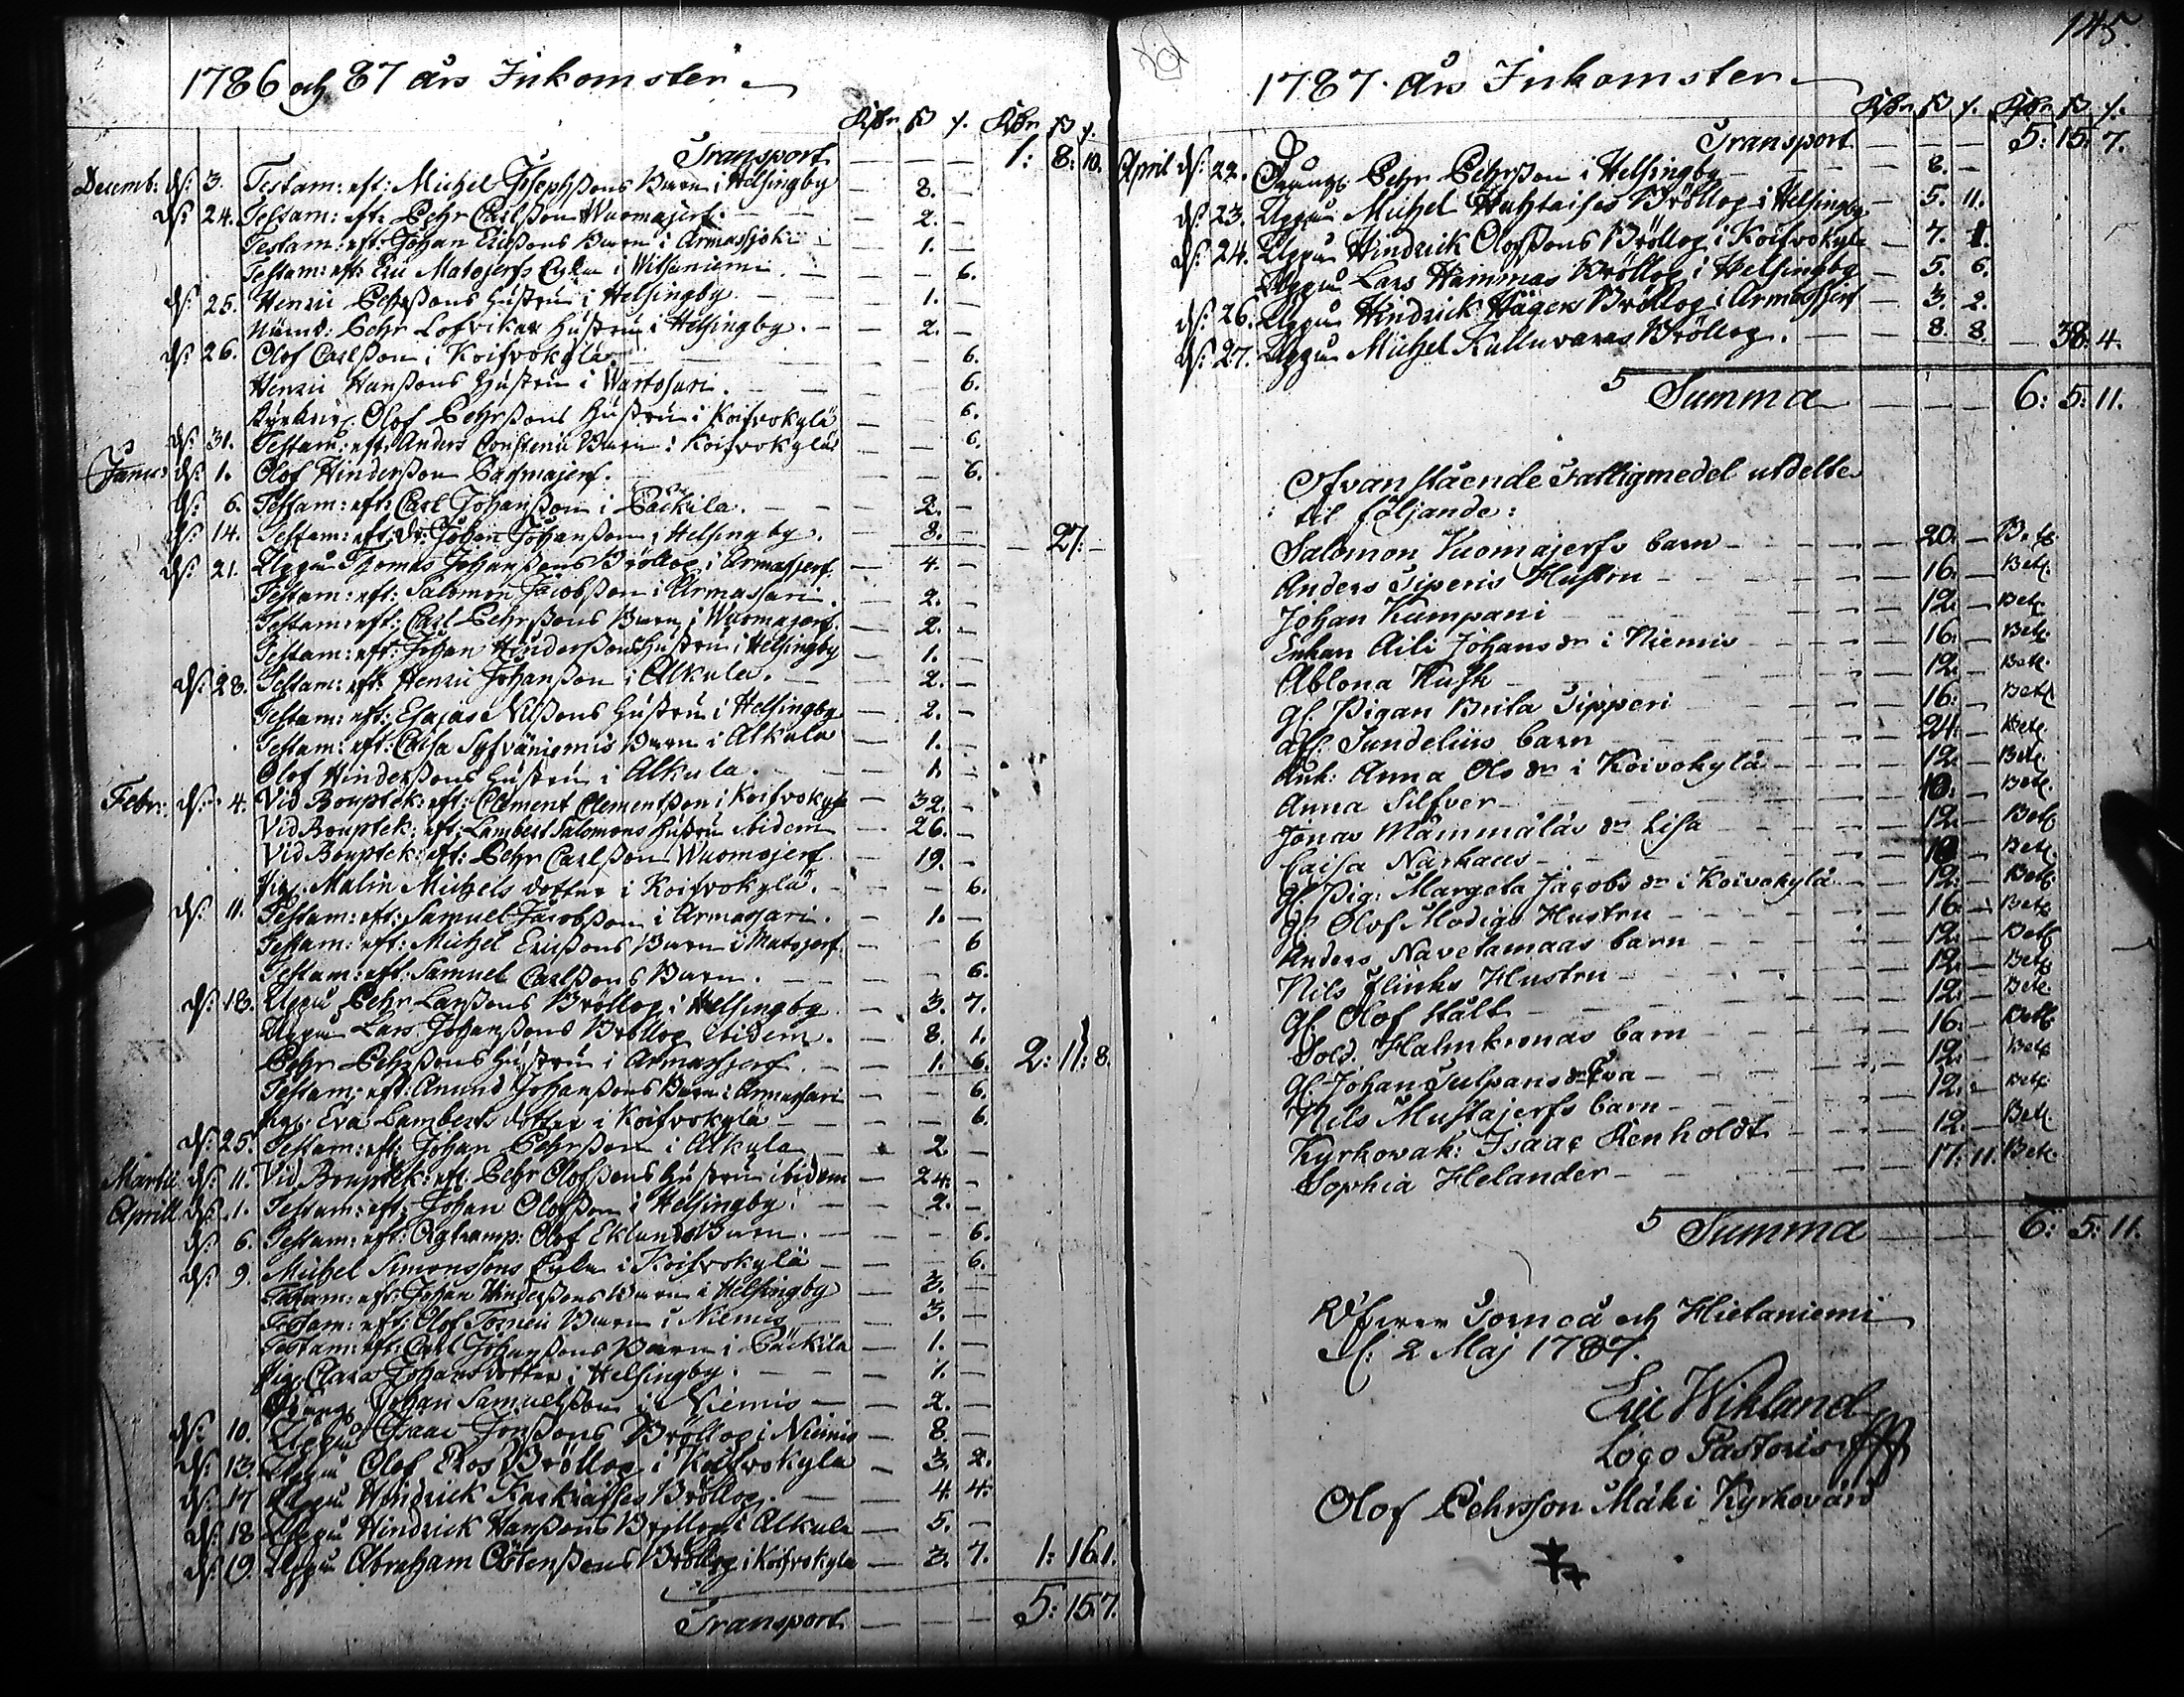 1786 och 87 års Inkomster
Rdr ß /. Rdr ß /.
Transport — — — 1: 8: 10.
Decemb: d: 3. Testam: eft: Michel Josephssons Barn i Helsingby — 8. —
d: 24. Testam: eft: Pehr Carlsson Wuomajerf. — 2. —
Testam: eft: Johan Ericssons Barn i Armassjoki — 1. —
Testam: eft: Eric Matojerfs i Witsaniemi. — — 6.
d: 25. Henric Pehrssons Hustru i Helsingby — 1. —
Nämd: Pehr Lofvikar Hustru i Helsingby. — 2. —
d: 26. Olof Carlsson i Koifvokylä — — 6.
Henric Hanssons Hustru i Wartosari. — — 6.
Olof Pehrssons Hustru i Koifvokylä — — 6.
d: 31. Testam: eft: Anders Barn i Koifvokylä — — 6.
Januar d: 1. Olof Hindersson — — 6.
d: 6. Testam: eft: Carl Johansson i Päckila. — 2. —
d: 14. Testam: eft: Johan Johansson i Helsingby. — 8. — — 27. —
d: 21. Uppå Thomas Johanssons Bröllop i Armasjerf. — 4. —
Testam: eft: Salomon Jacobsson i Armassari. — 2. —
Testam: eft: Carl Pehrssons Barn i Wuomajerf. — 2. —
Testam: eft: Johan Hinderssons Hustru i Helsingby — 1. —
d: 28. Testam: eft: Henric Johansson i Alkula. — 2. —
Testam: eft: Esaias Nilssons Hustru i Helsingby — 2. —
Testam: eft: Caisa Sylväniemis Barn i Alkula — 1. —
Olof Hinderssons Hustru i Alkula. — 1. —
Febr: d: 4. Vid Bouptek: eft: Clement Clementsson i Koifvokylä — 32. —
Vid Bouptek: eft: Lambert Salomons Hustru ibidem — 26. —
Vid Bouptek: eft: Pehr Carlsson Wuomajerf — 19. —
Pig. Malin Michels dotter i Koifvokylä. — — 6.
d: 11. Testam: eft: Samuel Jacobsson i Armassari. — 1. —
Testam: eft: Michel Ericssons Barn i Matojerf. — — 6
Testam: eft: Samuel Carlssons Barn. — — 6.
d: 18. Uppå Pehr Larssons Bröllop i Helsingby — 3. 7.
Uppå Lars Johanssons Bröllop ibidem. — 8. 1.
Pehr Pehrssons Hustru i Armassjerf. — 1. 6. 2: 11: 8.
Testam: eft: Amund Johanssons Barn i Armassari — — 6.
Pig. Eva Lamberts dotter i Koifvokylä — — 6.
d: 25. Testam: eft: Johan Pehrsson i Alkula — 2 —
Martii d: 11. Vid Bouptek: eft. Pehr Olofssons Hustru ibidem — 24. —
Aprill d: 1. Testam: eft: Johan Olofsson i Helsingby. — 2. —
d: 6. Testam: eft: Olof Eklunds Barn. — — 6.
d: 9. Michel Simonssons i Koifvokylä — — 6.
Testam: eft: Johan Hinderssons Barn i Helsingby — 3. —
Testam: eft: Olof Torneii Barn i Niemis — 3. —
Testam: eft: Carl Johanssons Barn i Päckila — 1. —
Pig. Clara Johansdotter i Helsingby. — 1. —
Johan Samuelsson i Niemis — 2. —
d: 10. Uppå Isaac Jonssons Bröllop i Niemis — 8. —
d: 13. Uppå Olof Ros Bröllop i Koifvokylä — 3. 2.
d: 17 Uppå Hindrick Karkiaises Bröllop. — 4. 4.
d: 18. Uppå Hindrick Hanssons Bröllop i Alkula — 5. —
d: 19. Uppå Abraham Bröllop i Koifvokylä — 3. 7. 1: 16. 1.
Transport — — — 5: 15. 7.
145.
1787. års Inkomster
Rdr ß /. Rdr ß /.
Transport — — — 5: 15: 7.
April d: 22. Pehr Pehrsson i Helsingby — 8. —
d: 23. Uppå Michel Huhtaises Bröllop i Helsingby — 5. 11.
d: 24. Uppå Hindrick Olofssons Bröllop i Koifvokylä — 7. 1.
Uppå Lars Hammas Bröllop i Helsingby — 5. 6.
d: 26. Uppå Hindrick Hägers Bröllop i Armassjerf — 3. 2.
d: 27. Uppå Michel Kulluvaras Bröllop. — 8. 8. — 38. 4.
Summa — — — 6: 5: 11.
Ofvanstående Fattigmedel utdeltes
til följande:
Salomon Vuomajerfs barn — 20. — Bet.
Anders Siperis Hustru — 16. — Bet.
Johan Kumpani — 12. — Bet.
Enkan Aili Johans dr i Niemis — 16. — Bet.
Ablona Kusk — 12. — Bet.
gl. Pigan Brita Sipperi — 16. — Bet.
afl. Sundelius barn — 24. — Bet.
Enk: Anna Ols dr i Koivokylä — 12. — Bet.
Anna Silfver — 10. — Bet.
Jonas Mämmäläs dr Lisa — 12. — Bet.
Caisa Närhaus — 10 — Bet.
gl. Pig: Margeta Jacobs dr i Koivokylä — 12. — Bet.
gl. Olof Modigs Hustru — 16. — Bet.
Anders Navetamaas barn — 12. — Bet.
Nils Flinks Hustru — 12. — Bet.
gl. Olof Stålt — 12. — Bet.
Sold. Halmkronas barn — 16. — Bet.
gl. Johan Tulpans dr Eva — 12. — Bet.
Nils Mustajerfs barn — 12. — Bet.
Kyrkovak: Isaac Renholdt — 12. — Bet.
Sophia Helander — 17. 11. Bet.
Summa — — — 6: 5: 11.
Torneå och Hietaniemi
d: 2 Maj 1787.
Eric Wikland
Loco Pastoris
Olof Pehrsson Mäki Kyrkovärd